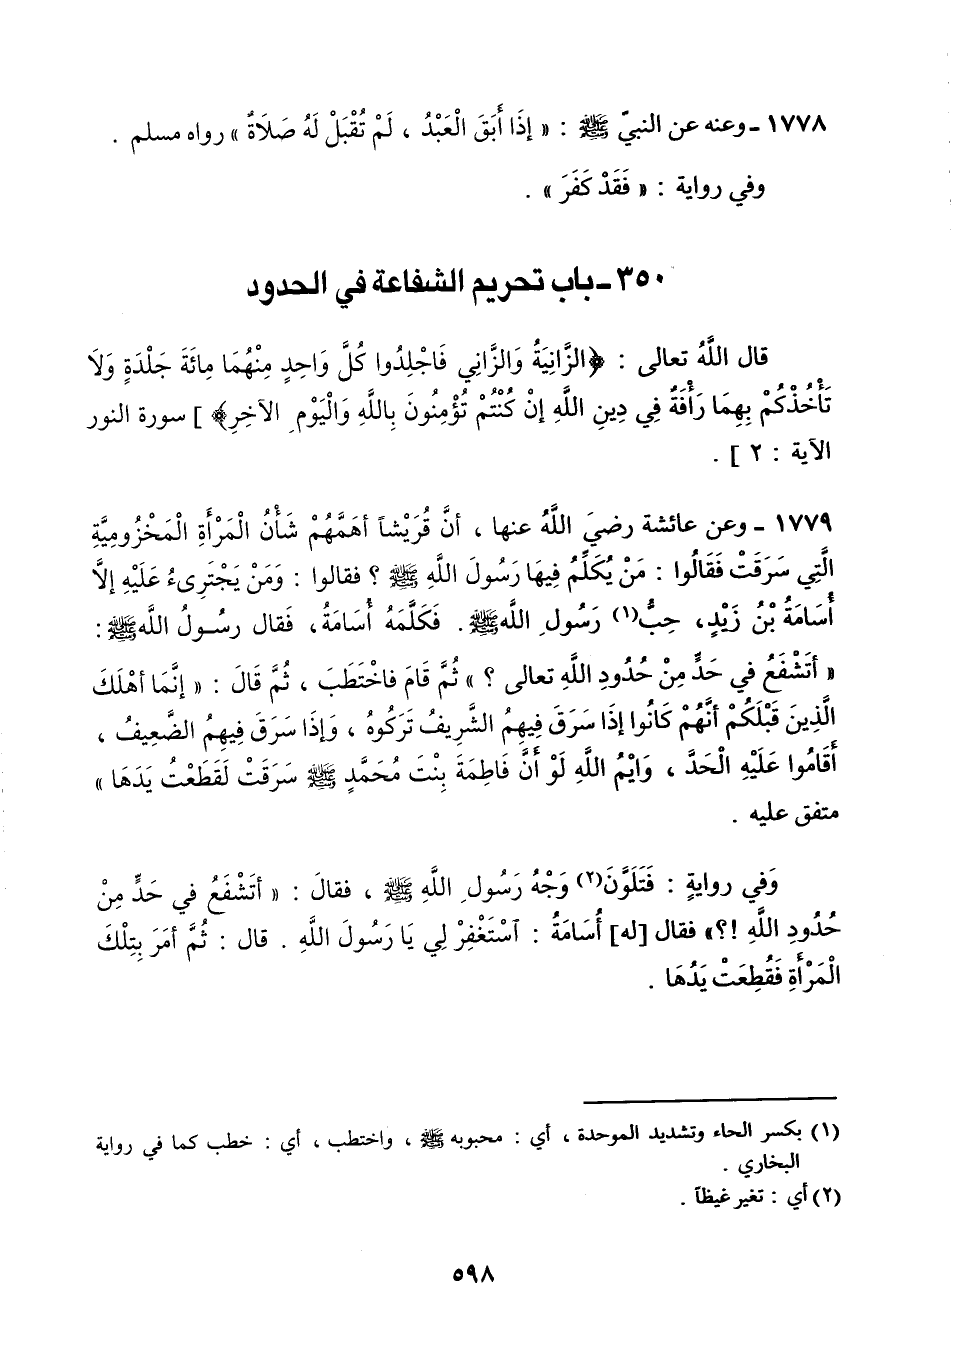 ١٧٧٨ ـ وعنه عن النبيّ ﷺ : « إِذَا أَبَقَ الْعَبْدُ ، لَمْ تُقْبَلْ لَهُ صَلَاةٌ » رواه مسلم .
وفي رواية : « فَقَدْ كَفَرَ » .
٣٥٠ ـ باب تحريم الشفاعة في الحدود
قال اللَّهُ تعالى : ﴿الزَّانِيَةُ وَالزَّانِي فَاجْلِدُوا كُلَّ وَاحِدٍ مِنْهُمَا مِائَةَ جَلْدَةٍ وَلَا
تَأْخُذْكُمْ بِهِمَا رَأْفَةٌ فِي دِينِ اللَّهِ إِنْ كُنْتُمْ تُؤْمِنُونَ بِاللَّهِ وَالْيَوْمِ الآخِرِ﴾ [ سورة النور
الآية : ٢ ] .
١٧٧٩ ـ وعن عائشة رضيَ اللَّهُ عنها ، أنَّ قُرَيْشاً أهَمَّهُمْ شَأْنُ الْمَرْأَةِ الْمَخْزُومِيَّةِ
الَّتِي سَرَقَتْ فَقَالُوا : مَنْ يُكَلِّمُ فِيهَا رَسُولَ اللَّهِ ﷺ ؟ فقالوا : وَمَنْ يَجْتَرِىءُ عَلَيْهِ إلَّا
أُسَامَةُ بْنُ زَيْدٍ، حِبُّ(١) رَسُولِ اللَّهِ ﷺ. فَكَلَّمَهُ أُسَامَةُ، فَقال رسُولُ اللَّه ﷺ :
« أتَشْفَعُ في حَدٍّ مِنْ حُدُودِ اللَّهِ تعالى ؟ » ثُمَّ قَامَ فاخْتَطَبَ ، ثُمَّ قَالَ : « إنَّمَا أهْلَكَ
الَّذِينَ قَبْلَكُمْ أنَّهُمْ كَانُوا إذَا سَرَقَ فِيهِمُ الشَّرِيفُ تَرَكُوهُ ، وَإذَا سَرَقَ فِيهِمُ الضَّعِيفُ ،
أَقَامُوا عَلَيْهِ الْحَدَّ ، وَايْمُ اللَّهِ لَوْ أنَّ فَاطِمَةَ بِنْتَ مُحَمَّدٍ ﷺ سَرَقَتْ لَقَطَعْتُ يَدَهَا »
متفق عليه .
وَفي روايةٍ : فَتَلَوَّنَ(٢) وَجْهُ رَسُولِ اللَّهِ ﷺ ، فقالَ : « أتَشْفَعُ في حَدٍّ مِنْ
حُدُودِ اللَّهِ !؟» فقال [له] أُسَامَةُ : آسْتَغْفِرْ لِي يَا رَسُولَ اللَّهِ . قال : ثُمَّ أمَرَ بِتِلْكَ
الْمَرْأَةِ فَقُطِعَتْ يَدُهَا .
(١) بكسر الحاء وتشديد الموحدة ، أي : محبوبه ﷺ ، واختطب ، أي : خطب كما في رواية
البخاري .
(٢) أي : تغير غيظاً .
٥٩٨